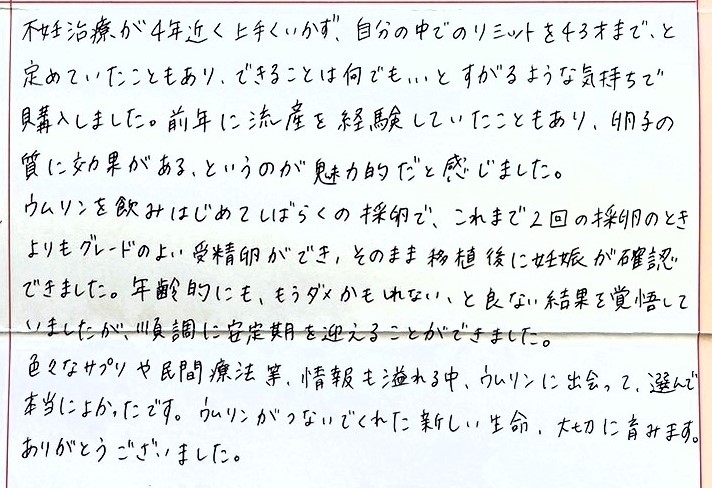 不妊治療が4年近く上手くいかず、自分の中でのリミットを43才まで、と
定めていたこともあり、できることは何でも…とすがるような気持ちで
購入しました。前年に流産を経験していたこともあり、卵子の
質に効果がある、というのが魅力的だと感じました。
ウムリンを飲みはじめてしばらくの採卵で、これまで2回の採卵のとき
よりもグレードのよい受精卵ができ、そのまま移植後に妊娠が確認
できました。年齢的にも、もうダメかもしれない、と良ない結果を覚悟して
いましたが、順調に安定期を迎えることができました。
色々なサプリや民間療法等、情報も溢れる中、ウムリンに出会って、選んで
本当によかったです。ウムリンがつないでくれた新しい生命、大切に育みます。
ありがとうございました。